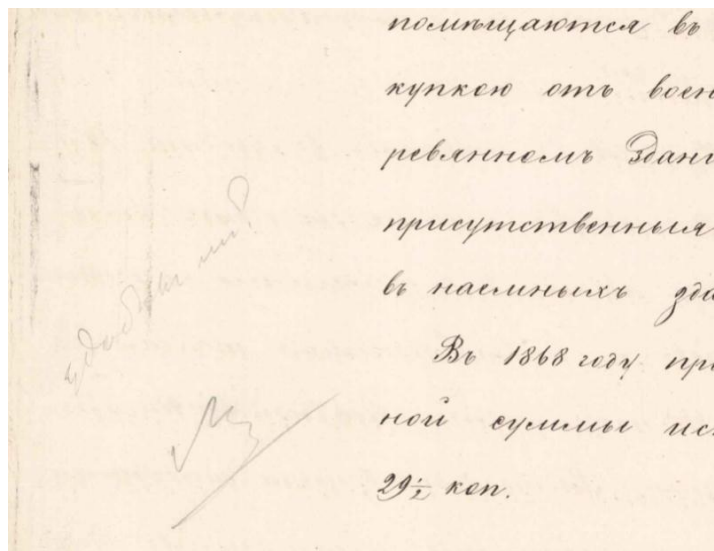 помѣщаются въ
купкою отъ воен
ревянномъ здані
присутственныя
въ наемныхъ зда
Въ 1868 году про
ной суммы исп
29½ коп.